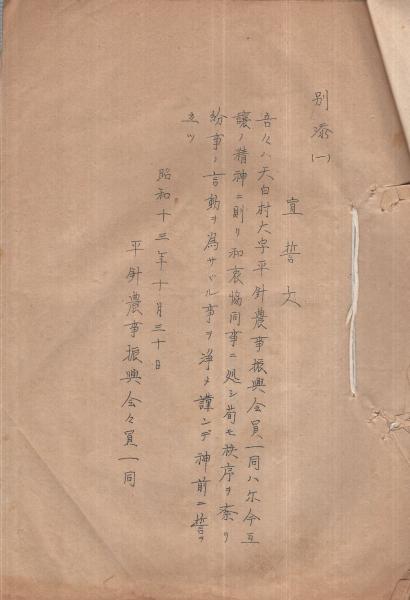 別添(一)
宣誓文
吾々ハ天白村大字平針農事振興会員一同ハ尓今互
譲ノ精神ニ則リ和衷協同事ニ処シ苟モ秩序ヲ紊リ
紛事ノ言動ヲ為サヾル事ヲ浄メ謹ンデ神前ニ誓ヲ
立ツ
昭和十三年十月三十日
平針農事振興会々員一同